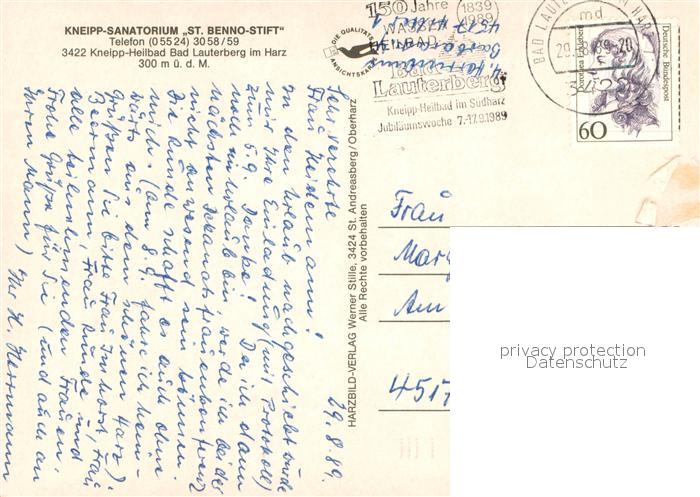 KNEIPP-SANATORIUM „ST. BENNO-STIFT"
Telefon (0 55 24) 30 58 / 59
3422 Kneipp-Heilbad Bad Lauterberg im Harz
300 m ü. d. M.
29.8.89.
Sehr verehrte
Frau Heidemann!
In den Urlaub nachgeschickt wurde
mir Ihre Einladung (mit Protokoll)
zum 5.9. Danke! Da ich dann
noch im Urlaub bin, werde ich bei der
nächsten Dekanatsfrauenkonferenz
nicht anwesend sein können.
Die Runde schafft es auch ohne
mich. (Am 8.9. fahre ich heim-
wärts aus dem schönen Harz)
Grüßen Sie bitte Frau Imhorst, Frau
Beermann, Frau Runde und
alle teilnehmenden Frauen.
Frohe Grüße für Sie (und auch an
Ihren Mann)
Ihr H. Herrmann
HARZBILD-VERLAG Werner Stille, 3424 St. Andreasberg/Oberharz
Alle Rechte vorbehalten
DIE QUALITÄTS
ANSICHTSKARTE
150 Jahre
1839
1989
WASSER
HEILBAD
Bad
Lauterberg
Kneipp-Heilbad im Südharz
Jubiläumswoche 7.-17.9.1989
4517 Hilter 1
BAD LAUTERBERG IM HARZ
md
29.-8.89-20
3422
Dorothea Erxleben
Deutsche Bundespost
60
Frau
Marg
Am
4517
privacy protection
Datenschutz